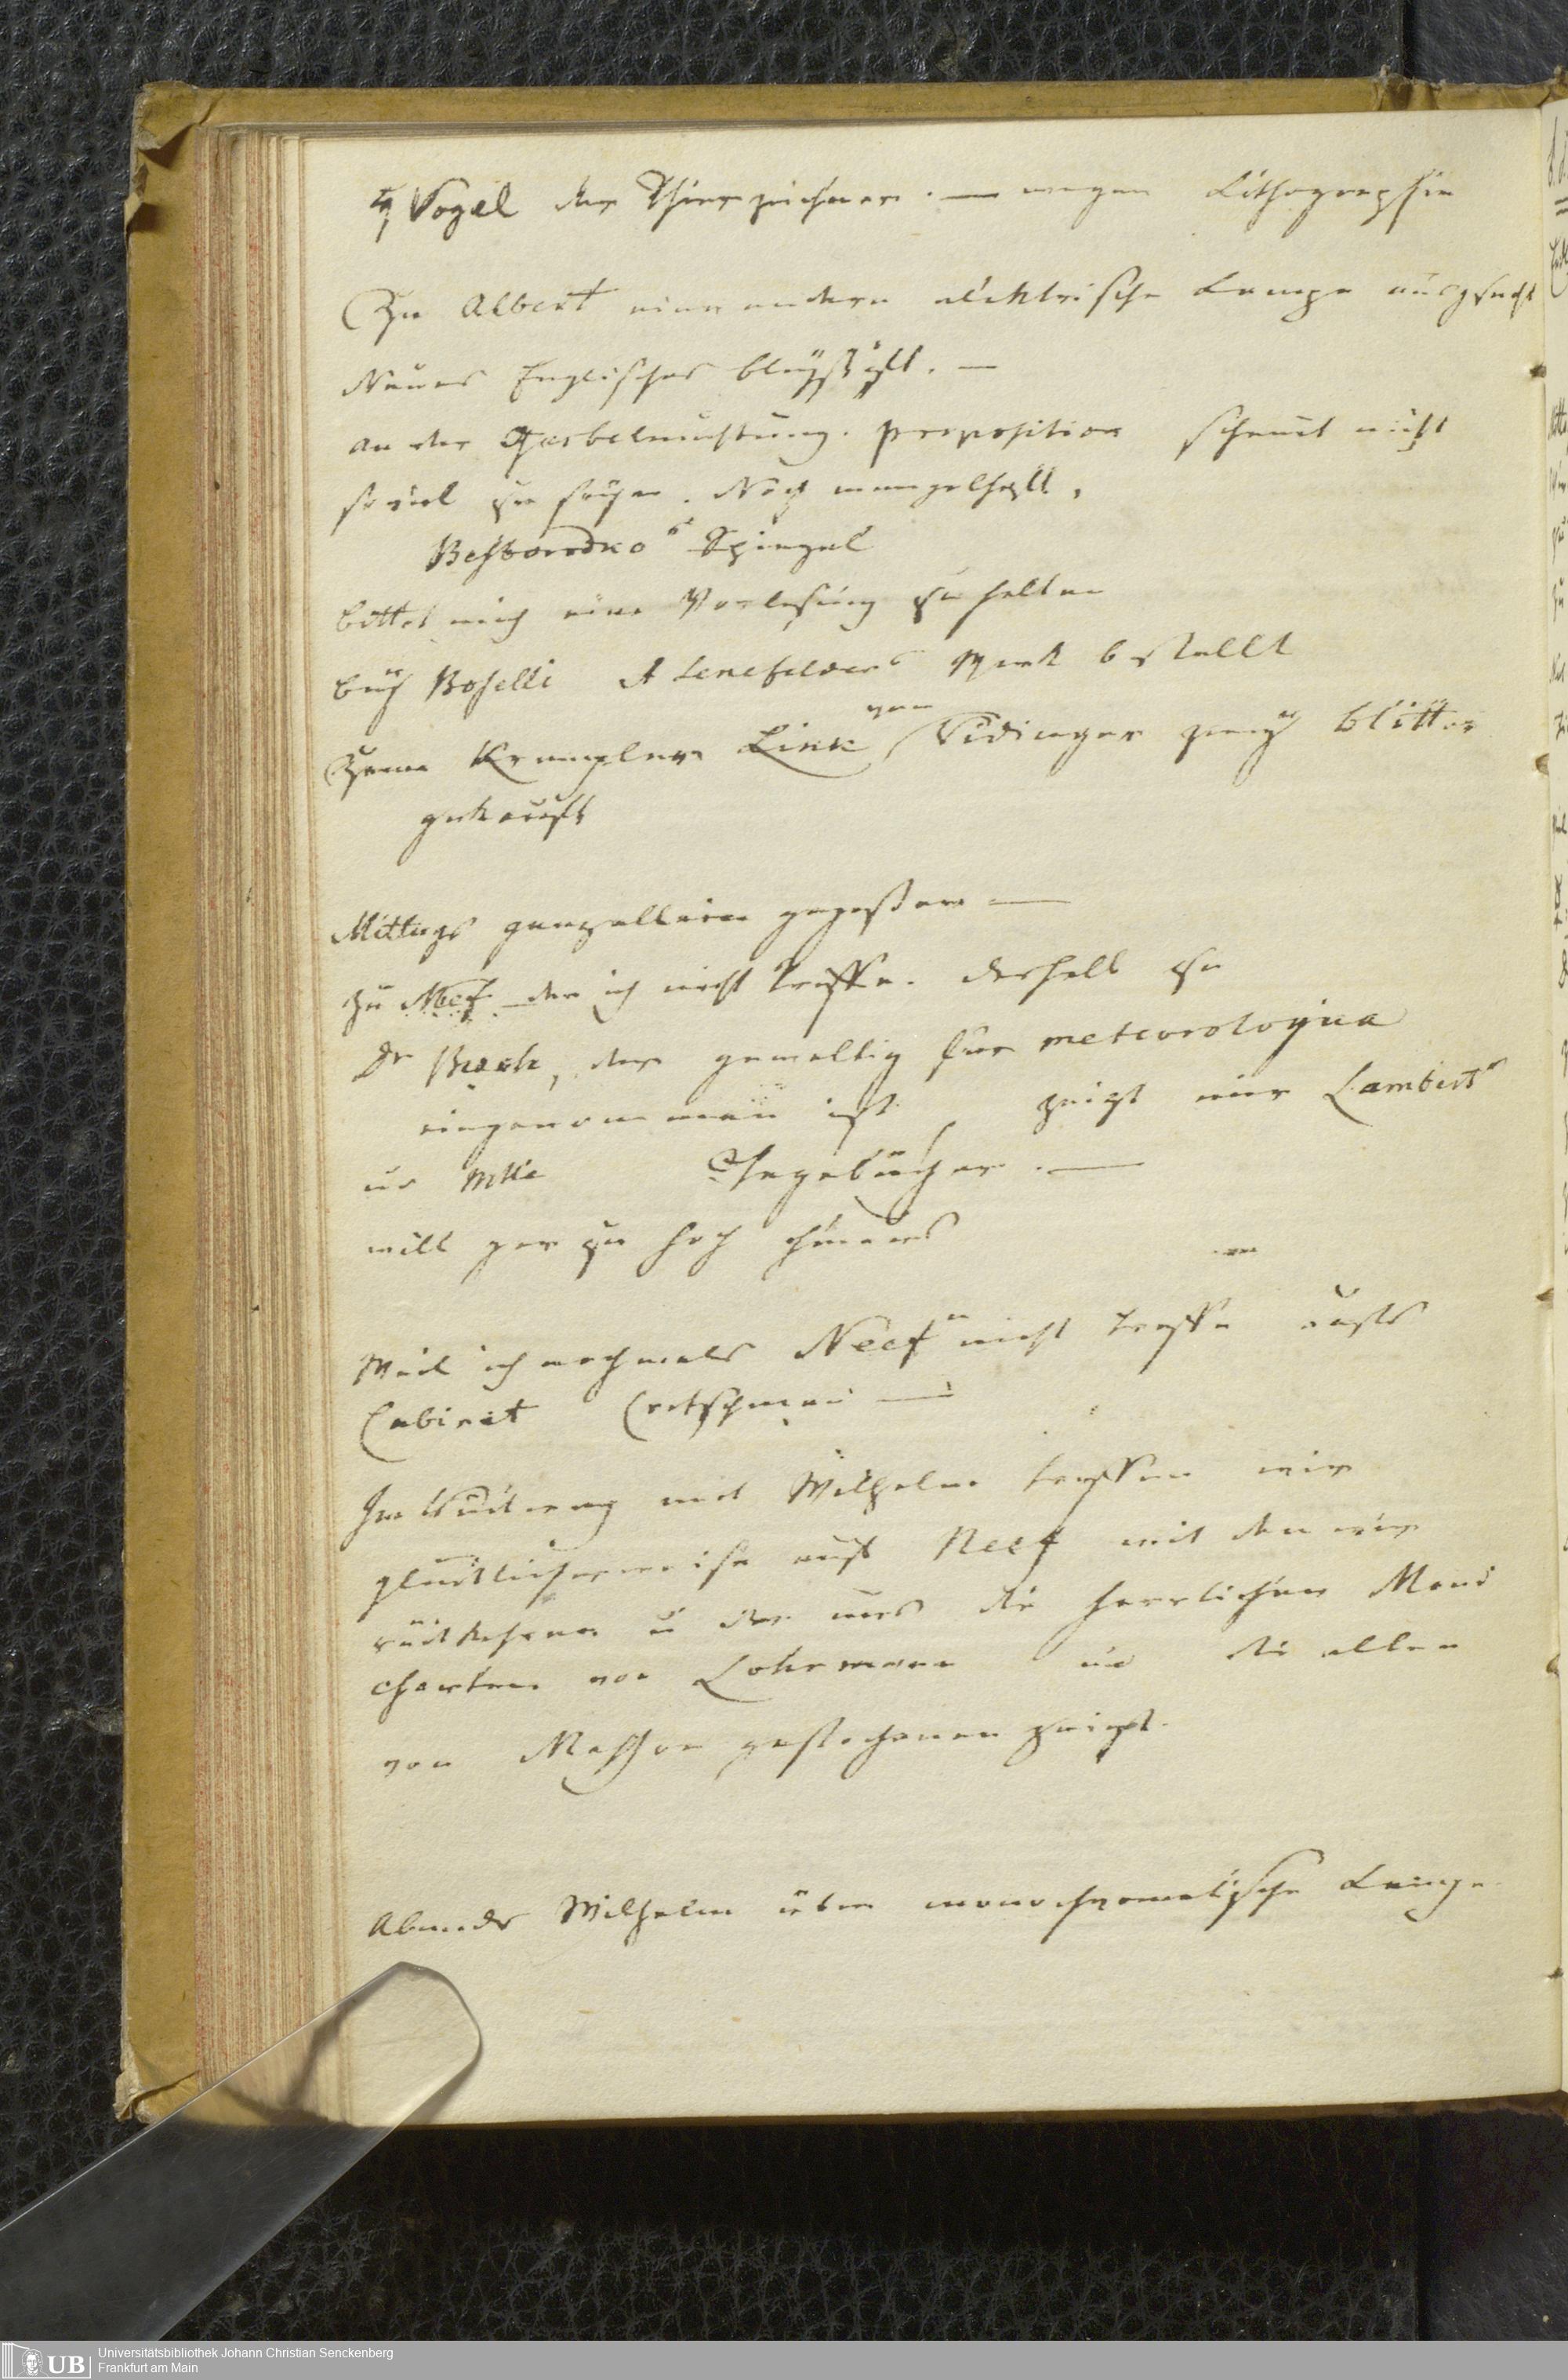 Vogel der Thierzeichner. — wegen Lithographie
Zu Albert eine andere elektrische Lampe ausgesucht
Neues Englisches
an der proposition scheint nicht
so viel zu sein. Noch mangelhaft.
Besborodko's Spiegel
bittet mich eine Vorlesung zu halten
bey Boselli A Senefelders Werk bestellt
Zum LinK von Ridinger zwey blätter
gekauft
Mittags ganz allein gegessen —
zu Neef den ich nicht treffe. deshalb zu
Dr der gewaltig für meteorologica
eingenommen ist, zeigt mir Lambert's
Tagebücher. —
will gar zu hoch hinaus
Weil ich nochmals Neef nicht treffe aufs
Cabinet Cretschmar —
Im Rückweg mit Wilhelm treffen wir
glücklicherweise auf Neef mit dem wir
rückkehren u der uns die herrlichen Mond
charten von Lohrmann und die alten
von gestochenen zeigt.
Abends Wilhelm über monochromatische Lampe.
Universitätsbibliothek Johann Christian Senckenberg
Frankfurt am Main
UB